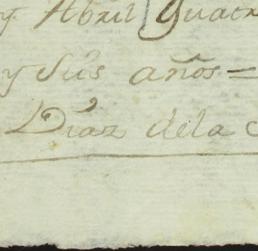 y Abril Quatr
y Sus años =
Diaz dela